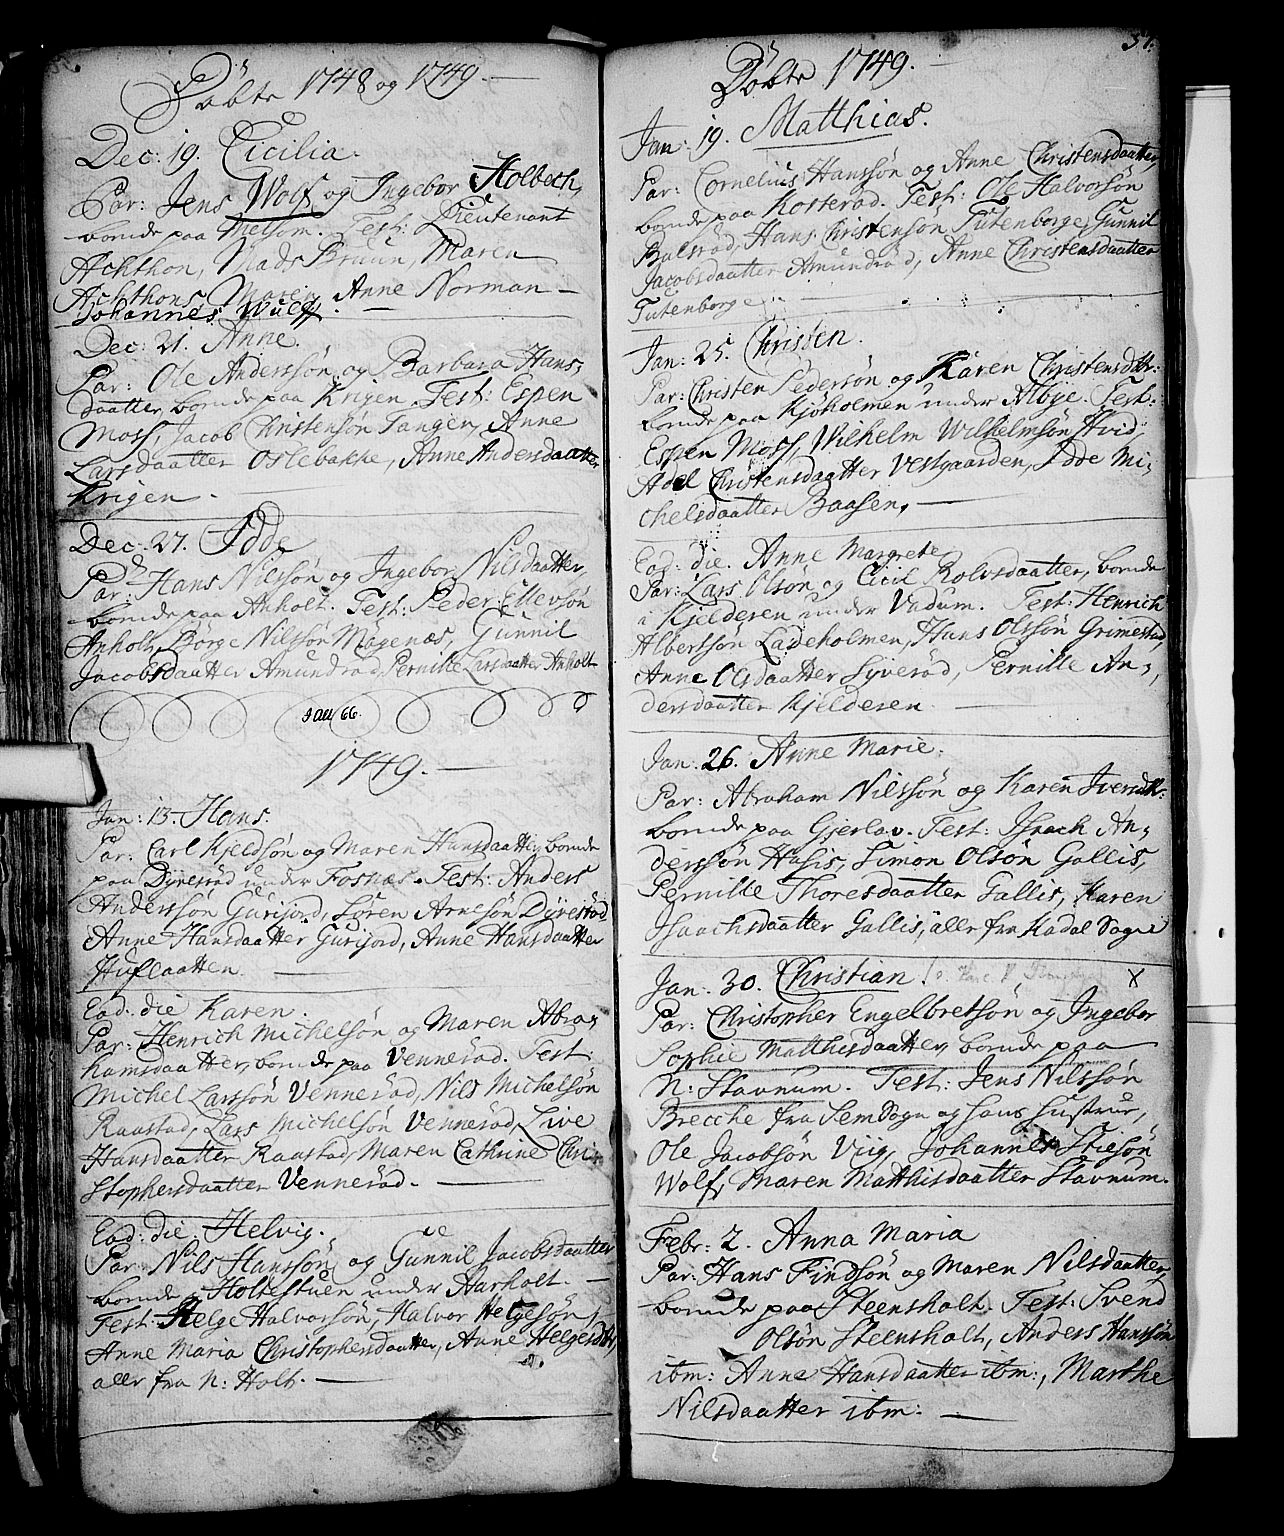 Döbte 1748 og 1749.
Dec: 19. Cicilia.
Par: Jens Wolf og Ingebor Holbech,
boende paa Melsom. Test: Lieutenant
Achthon, Mads Bruun, Maren
Achthons, Maren, Anne Norman
Johannes Wulff.
Dec: 21. Anne.
Par: Ole Andersön og Barbara Hans,
daatter, boende paa Krigen. Test: Espen
Moss, Jacob Christensön Tangen, Anne
Larsdaatter Oslebakke, Anne Andersdaatter
Krigen.
Dec: 27. Idde
Par: Hans Nilsön og Ingebor Nilsdaatter,
boende paa Anholt. Test: Peder Ellevsön
Anholt, Borge Nilsön Mogenæs, Gunnil
Jacobsdaatter Amundrød, Pernille Larsdaatter Anholt
66.
1749.
Jan: 13. Hans.
Par: Carl Kjeldsön og Maren Hansdaatter, boende
paa Dyresröd under Fosnæs. Test: Anders
Andersön Gurijord, Sören Arnesön Dyresröd
Anne Hansdaatter Gurijord, Anne Hansdaatter
Huflaatten.
Eod: die Karen.
Par: Henrich Michelsön og Maren Abra,
hamsdaatter, boende paa Venneröd. Test:
Michel Larsön Venneröd, Nils Michelsön
Raastad, Lars Michelsön Venneröd, Live
Hansdaatter Raastad, Maren Cathrine Chri
stophersdaatter Venneröd.
Eod: die Helvig.
Par: Nils Hansön og Gunnil Jacobsdaatter
boende Holtestuen under Aarholt.
Test: Helge Halvorsön, Halvor Helgesön,
Anne Maria Christophersdaatter, Anne Helgesdtr,
alle fra N: Holt.
37.
Döbte 1749.
Jan: 19. Matthias.
Par: Cornelius Hansön og Anne Christensdaatter,
boende paa Kosteröd. Test: Ole Halvorsön
Balsröd, Hans Christensön Tutenborge, Gunnil
Jacobsdaatter Amundröd, Anne Christensdaatter
Tutenborge
Jan: 25. Christen.
Par: Christen Pedersön og Karen Christensdtr:
boende paa Kjöholmen under Alböe. Test:
Espen Moss, Wilhelm Wilhelmsön Hvid,
Adel Christensdaatter Vestgaarden, Idde Mi,
chelsdaatter Baasen.
Eod: die. Anne Margrete
Par: Lars Olsön og Cicil Rolvsdaatter, boende
i Kjelderen under Vadum. Test: Henrich
Albertsön Ladeholmen, Hans Olsön Grimestad,
Anne Olsdaatter Syveröd, Pernille An,
dersdaatter Kjelderen
Jan: 26. Anne Marie.
Par: Abraham Nilssön og Karen Iversdtr:
boende paa Gjerlöv. Test: Isach An,
dersön Hasis, Simon Olsön Gallis,
Pernille Thoresdaatter Gallis, Karen
Isachsdaatter Gallis, alle fra Kadal Sogn
Jan: 30. Christian. X
Par: Christopher Engelbretsön og Ingebor
Sophie Matthisdaatter, boende paa
N: Stavnum. Test: Jens Nilssön
Brecche fra Sem Sogn og hans hustrue,
Ole Jacobsön Viig, Johannes Stiesön
Wolf, Maren Matthisdaatter Stavnum.
Febr: 2. Anna Maria
Par: Hans Findsön og Maren Nilsdaatter,
boende paa Steensholt. Test: Svend
Olsön Steensholt, Anders Hansön
ibm: Anne Hansdaatter ibm:, Marthe
Nilsdaatter ibm: